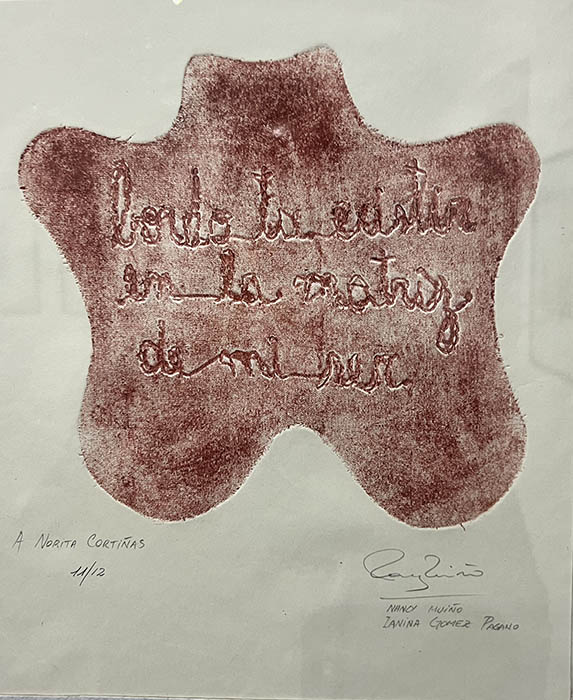 bordo tu existir
en la matriz
de mi ser
A NORITA CORTIÑAS
11/12
NANCY MUIÑO
IANINA GOMEZ PAGANO